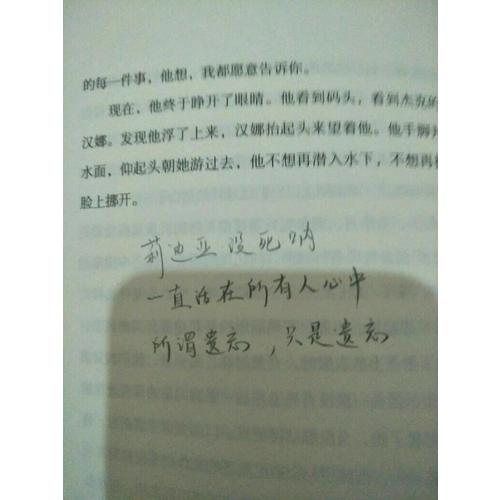 的每一件事，他想，我都愿意告诉你。
现在，他终于睁开了眼睛。他看到码头，看到杰克的
汉娜。发现他浮了上来，汉娜抬起头来望着他。他手脚并
水面，仰起头朝她游过去，他不想再潜入水下，不想再被
脸上挪开。
莉迪亚没死呐
一直活在所有人心中
所谓遗忘，只是遗忘